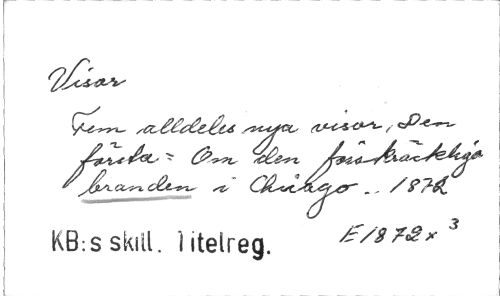 Visor
Fem alldeles nya visor, Den
första = Om den förskräckliga
branden i Chicago.. 1872
E1872x³
KB:s skill. Titelreg.